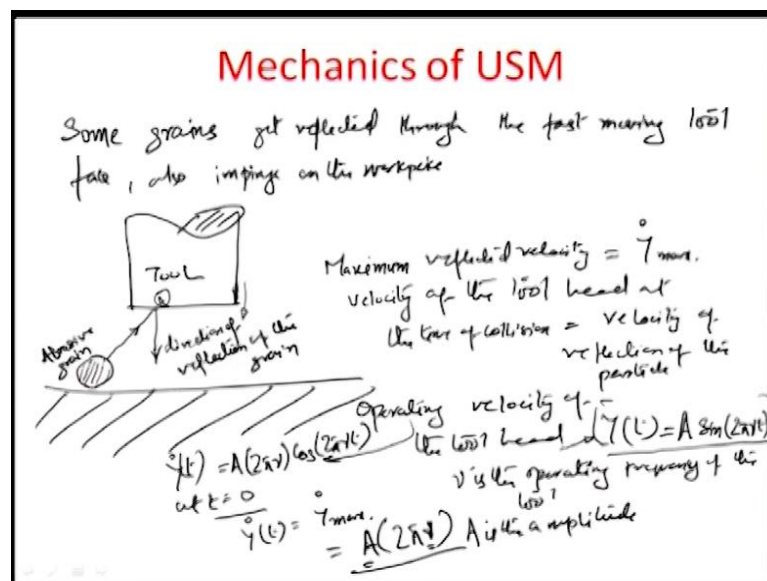 Mechanics of USM
Some grains get reflected through the fast moving tool
face, also impinge on the workpiece
TOOL
Abrasive
grain
direction of
reflection of the
grain
Maximum reflected velocity = Ẏmax.
velocity of the tool head at
the time of collision = velocity of
reflection of the
particle
Operating velocity of
the tool head Y(t) = A Sin(2πνt)
ν is the operating frequency of the
tool
Ẏ(t) = A(2πν) Cos(2πνt)
at t = 0
Ẏ(t) = Ẏmax.
= A(2πν) A is the amplitude